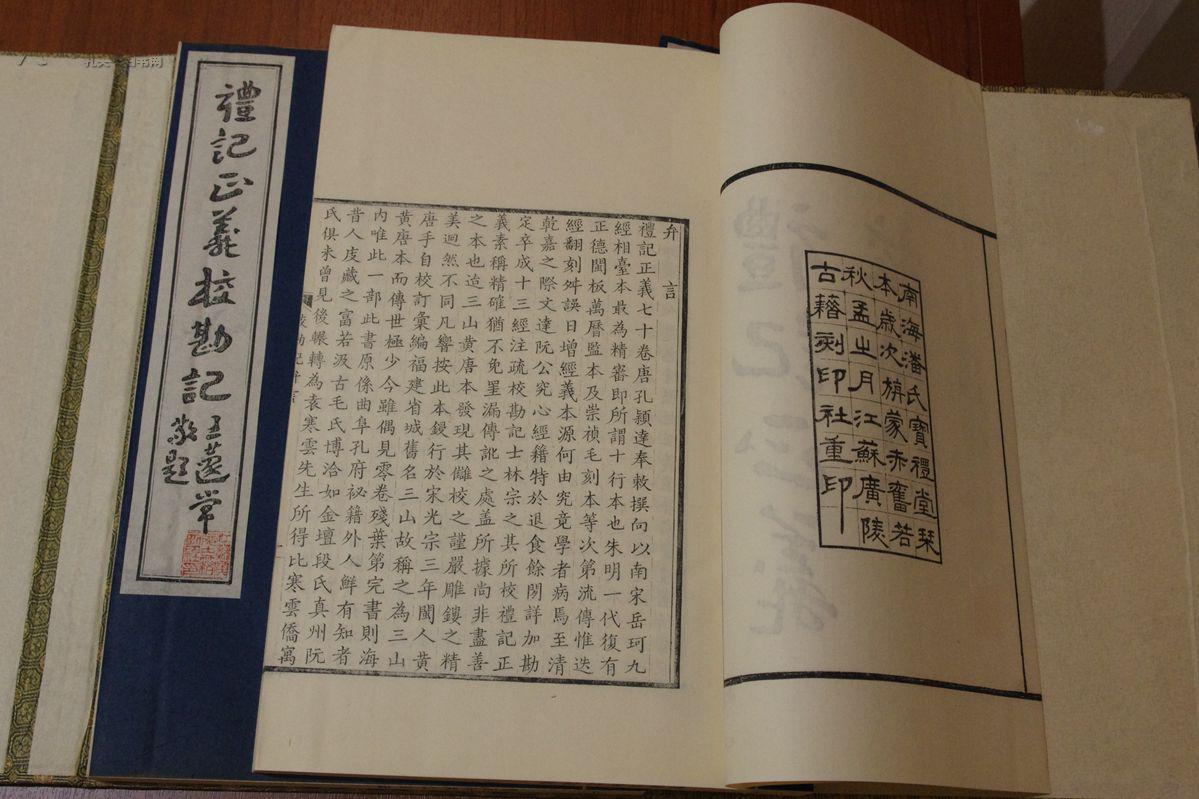 禮記正義校勘記
王蘧常
敬題
南海潘氏寶禮堂栞
本歲次旃蒙赤奮若
秋孟之月江蘇廣陵
古籍刻印社重印
弁言
禮記正義七十卷唐孔穎達奉敕撰向以南宋岳珂九
經相臺本最為精審即所謂十行本也朱明一代復有
正德閩板萬曆監本及崇禎毛刻本等次第流傳惟迭
經翻刻舛誤日增經義本源何由究竟學者病焉至清
乾嘉之際文達阮公究心經籍特於退食餘閒詳加勘
定卒成十三經注疏校勘記士林宗之其所校禮記正
義素稱精確猶不免罣漏傳訛之處盖所據尚非盡善
之本也迨三山黄唐本發現其讎校之謹嚴雕鏤之精
美迥然不同凡響按此本鋟行於宋光宗三年閩人黄
唐手自校訂彙編福建省城舊名三山故稱之為三山
黄唐本而傳世極少今雖偶見零卷殘葉第完書則海
内唯此一部此書原係曲阜孔府祕籍外人鮮有知者
昔人庋藏之富若汲古毛氏博洽如金壇段氏真州阮
氏俱未曾見後輾轉為袁寒雲先生所得比寒雲僑寓